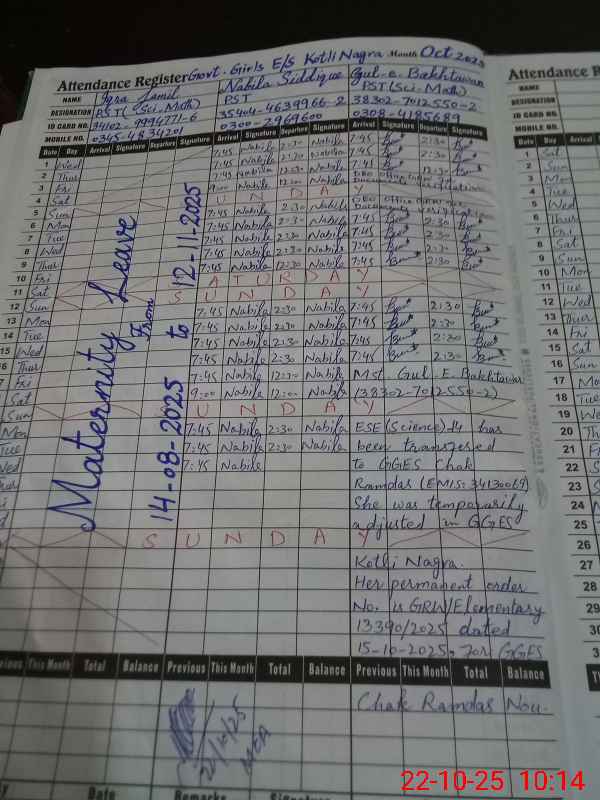 Attendance Register Govt. Girls E/S Kotli Nagra Month Oct 2025
NAME Iqra Jamil Nabila Siddique Gul-e-Bakhtawar
DESIGNATION PST (Sci-Math) PST PST (Sci-Math)
ID CARD NO. 34102-9994771-6 35404-4639966-2 38302-7012550-2
MOBILE NO. 0345-4834201 0300-2969600 0308-4185689
Date Day Arrival Signature Departure Signature Arrival Signature Departure Signature Arrival Signature Departure Signature
1 Wed 7:45 Nabila 2:30 Nabila 7:45 2:30
2 Thur 7:45 Nabila 2:30 Nabila 7:45 2:30
3 Fri 7:45 Nabila 12:30 Nabila 7:45 12:30
4 Sat 9:00 Nabila 12:00 Nabila DEO Office
5 Sun S U N D A Y
6 Mon 7:45 Nabila 2:30 Nabila Documents verification
7 Tue 7:45 Nabila 2:30 Nabila 7:45 2:30
8 Wed 7:45 Nabila 2:30 Nabila 7:45 2:30
9 Thur 7:45 Nabila 2:30 Nabila 7:45 2:30
10 Fri 7:45 Nabila 12:30 Nabila 7:45 2:30
11 Sat S A T U R D A Y
12 Sun S U N D A Y
13 Mon 7:45 Nabila 2:30 Nabila 7:45 2:30
14 Tue 7:45 Nabila 2:30 Nabila 7:45 2:30
15 Wed 7:45 Nabila 2:30 Nabila 7:45 2:30
16 Thur 7:45 Nabila 2:30 Nabila 7:45 2:30
Fri 7:45 Nabila 12:30 Nabila
Sat 9:00 Nabila 12:00 Nabila
Sun S U N D A Y
Mon 7:45 Nabila 2:30 Nabila
Tue 7:45 Nabila 2:30 Nabila
Wed 7:45 Nabila
S U N D A Y
Maternity Leave
From
14-08-2025 to 12-11-2025
Mst. Gul-E-Bakhtawar
(38302-7012550-2)
ESE (Science)-14 has
been transfered
to GGES Chak
Ramdas (EMIS: 34130069)
She was temporarily
adjusted in GGES
Kotli Nagra.
Her permanent order
No. is GRW/Elementary
13390/2025 dated
15-10-2025, for GGES
Chak Ramdas Nou.
Previous This Month Total Balance Previous This Month Total Balance Previous This Month Total Balance
Date Remarks Signature
Attendance R
NAME
DESIGNATION
ID CARD NO.
MOBILE NO.
Date Day Arrival
1 Sat
2 Sun
3 Mon
4 Tue
5 Wed
6 Thur
7 Fri
8 Sat
9 Sun
10 Mon
11 Tue
12 Wed
13 Thur
14 Fri
15 Sat
16 Sun
17 Mon
18 Tue
19 Wed
20 Thu
21 Fri
22 S
23 S
24
25
26
27
28
29
30
22-10-25 10:14